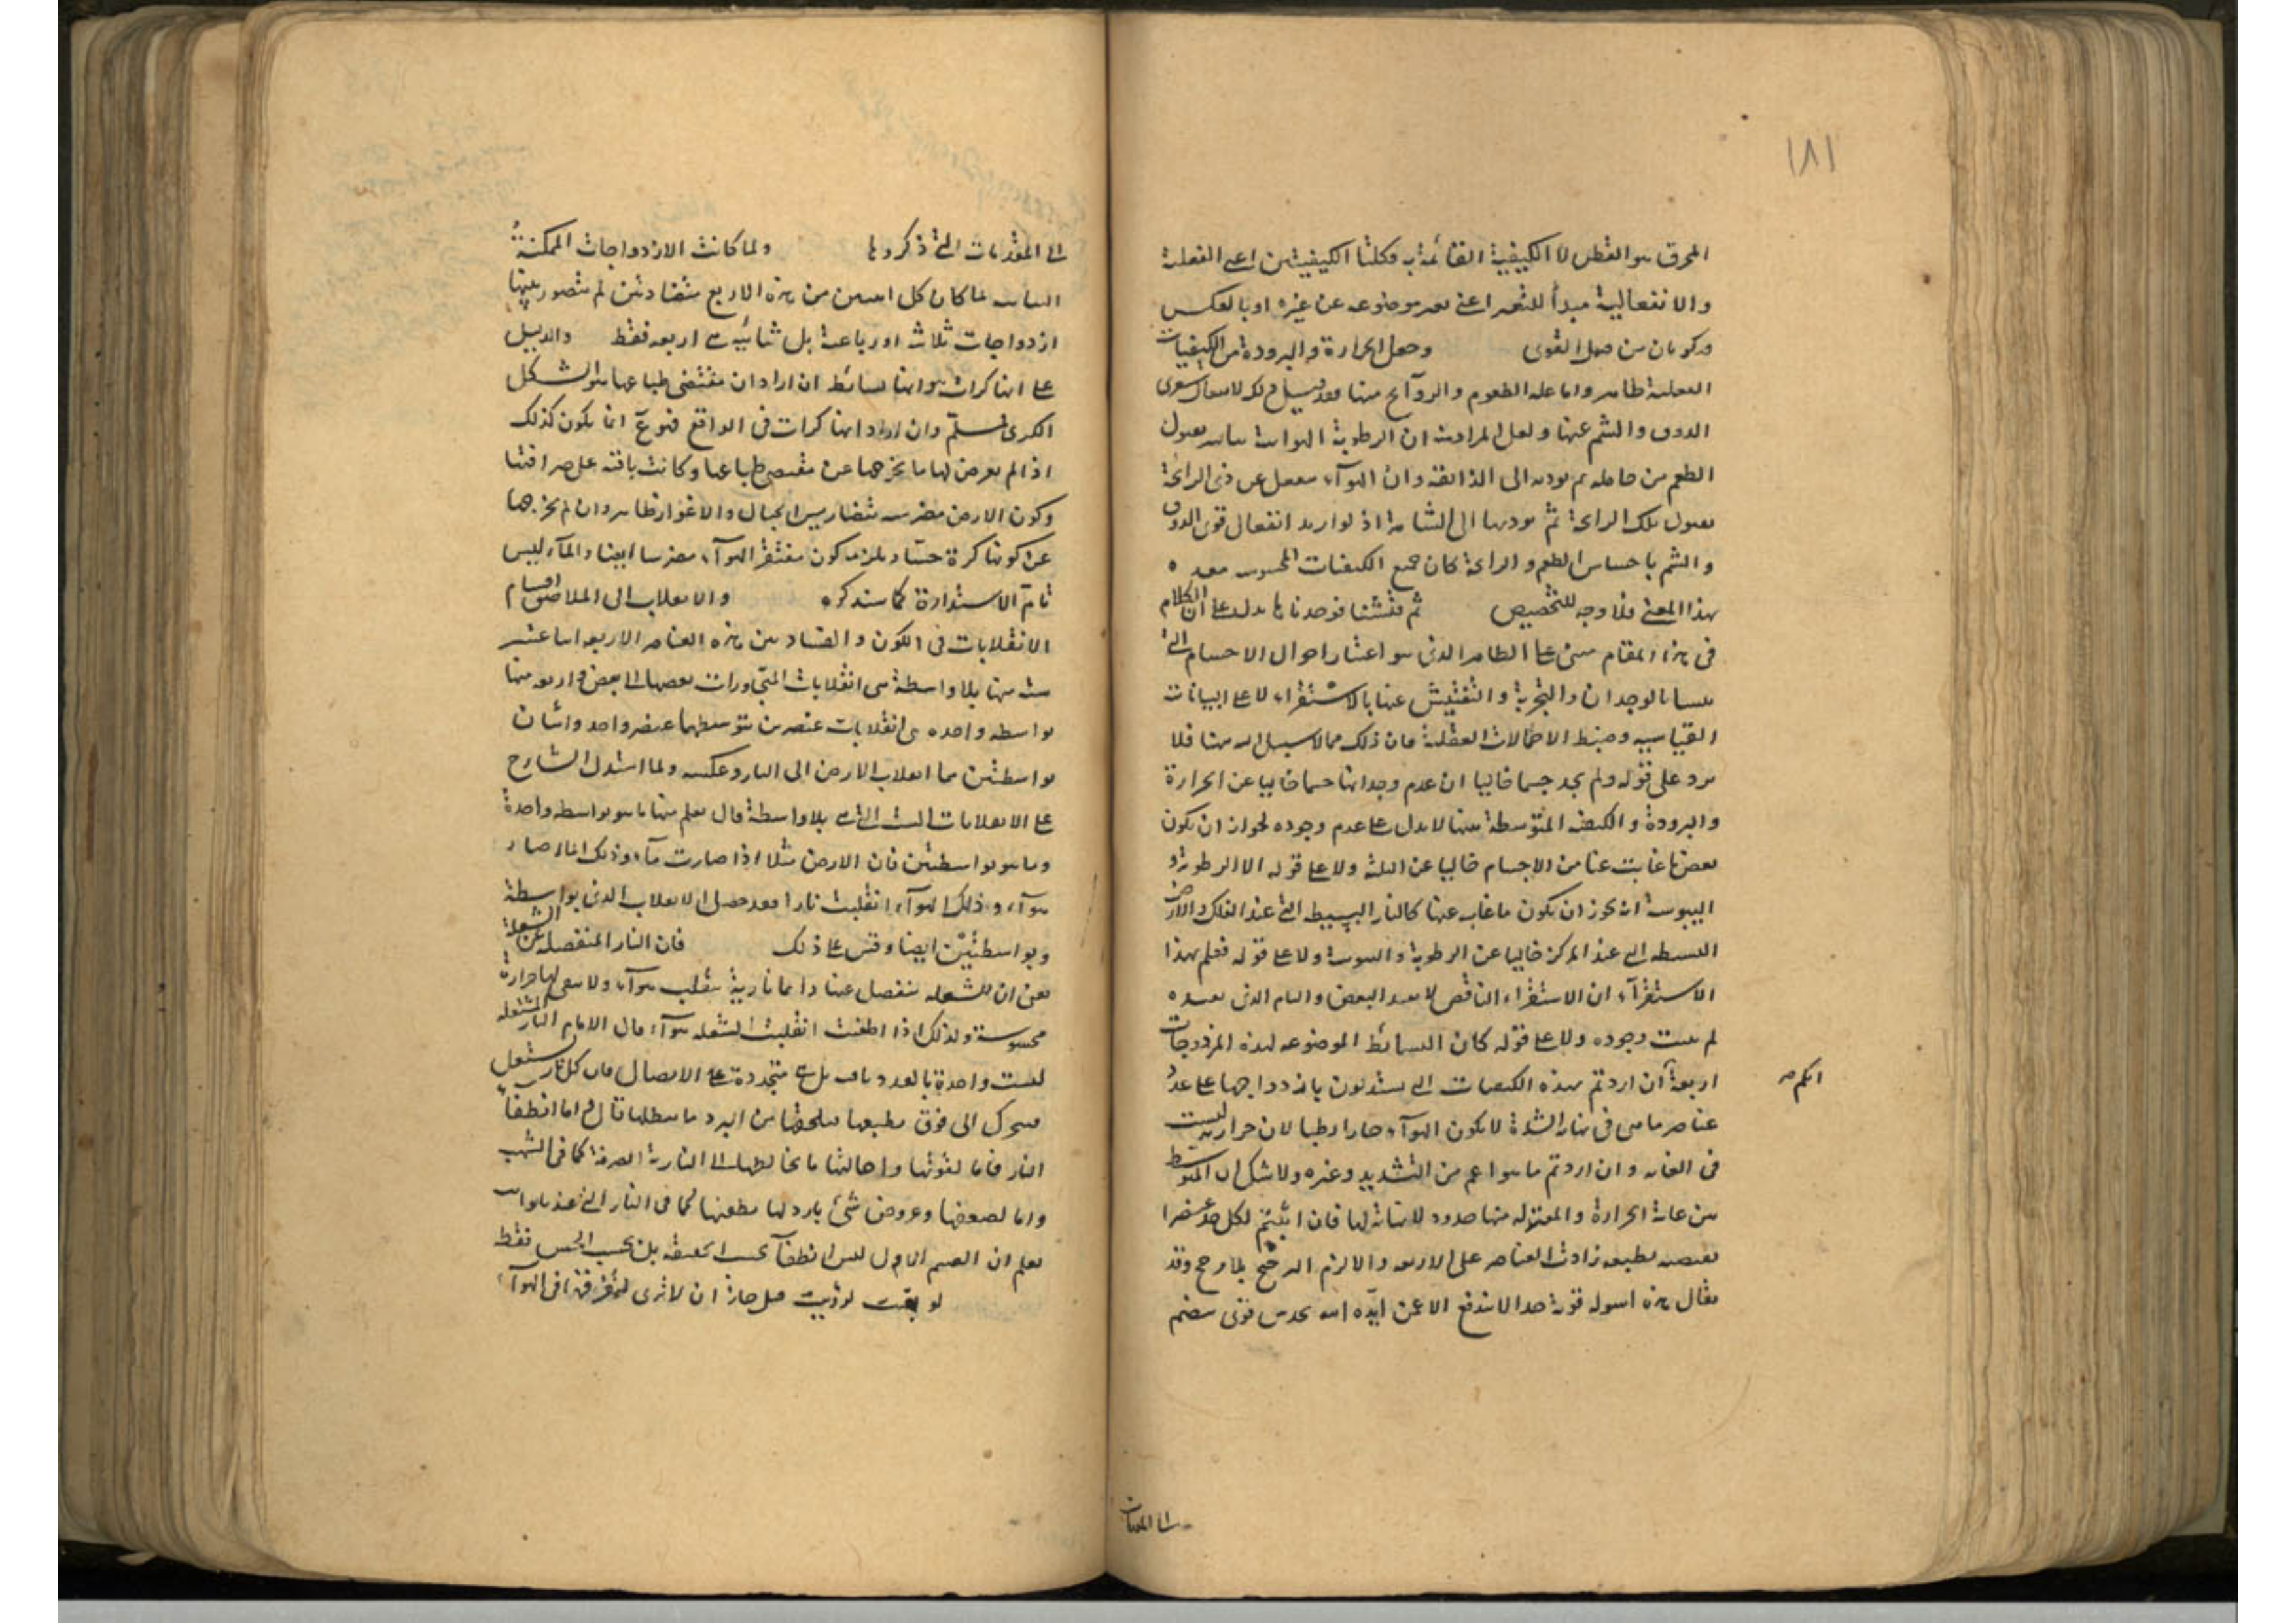 ١٨١
المحرق هو القطن لا الكيفية القائمة به فكلتا الكيفيتين اعنى الفعلية
والانفعالية مبدأ للتغير اعنى تغير موضوعه عن غيره او بالعكس
فيكونان من قبيل القوى وجعل الحرارة والبرودة من الكيفيات
الفعلية ظاهر واما عد الطعوم والروآئح منها فقد قيل ذلك لانفعال قوى
الذوق والشم عنها ولعل المراد به ان الرطوبة اللعابية تقبل
الطعم من حامله ثم تؤديه الى الذائقة وان الهوآء ينفعل عن ذى الرائحة
بقبول تلك الرائحة ثم يوديها الى الشامة اذ لو اريد انفعال قوى الذوق
والشم باحساس الطعم والرائحة كان جميع الكيفيات المحسوسة فعلية
بهذا المعنى فلا وجه للتخصيص ثم فتشنا فوجدنا ما يدل على ان الكلام
فى هذا المقام مبنى على الظاهر الذى هو اعتبار احوال الاجسام التى
بالوجدان والتجربة والتفتيش عنها بالاستقراء لا على البيانات
القياسية وضبط الاحتمالات العقلية فان ذلك مما لا سبيل اليه هنا فلا
يرد على قوله ولم نجد جسما خاليا ان عدم وجداننا جسما خاليا عن الحرارة
والبرودة والكيفية المتوسطة بينهما لا يدل على عدم وجوده لجواز ان يكون
بعض ما غابت عنا من الاجسام خاليا عن الثلثة ولا على قوله الا الرطوبة و
اليبوسة انه يجوز ان يكون ما غاب عنها كالنار البسيطة التى عند الفلك والارض
البسيطة التى عند المركز خاليا عن الرطوبة واليبوسة ولا على قوله فعلم بهذا
الاستقرآء ان الاستقراء الناقص لا يفيد البعض والتام الذى يفيده
لم يثبت وجوده ولا على قوله كان البسائط الموضوعة لهذه المزدوجات
اربعة ان اردتم بهذه الكيفيات التى تستدلون بازدواجها على عدد
انكم صح
عناصر ما هى فى نهاية الشدة لا يكون الهوآء حارا رطبا لان حرارته ليست
فى الغاية وان اردتم ما هو اعم من الشديد وغيره ولا شك ان المتوسط
بين غاية الحرارة والمعتدلة منها حدود لا نهاية لها فان اثبتم لكل حد عنصرا
يقتضيه بطبعه زادت العناصر على الاربعة والا لزم الترجيح بلا مرجح وقد
يقال هذه اسولة قوية جدا لا تندفع الا عمن ايّده الله بحدس قوى ينضم
الى المقدمات
الى المقدمات التى ذكروها ولما كانت الازدواجات الممكنة
لما كان كل اثنين من هذه الاربع متضادتين لم يتصور بينها
ازدواجات ثلاثية او رباعية بل ثنائية هى اربعة فقط والدليل
على انها كرات هو انها بسائط ان اراد ان مقتضى طباعها هو الشكل
الكرى فمسلّم وان اراد انها كرات فى الواقع فممنوع انما يكون كذلك
اذا لم يعرض لها ما يخرجها عن مقتضى طباعها وكانت باقية على صرافتها
وكون الارض مضرسة بتضاريس الجبال والاغوار ظاهر وان لم يخرجها
عن كونها كرة حسّا ويلزمه كون مقعر الهوآء مضرسا ايضا والمآء ليس
تامّ الاستدارة كما سنذكره والانقلاب الى الملاصق اقسام
الانقلابات فى الكون والفساد بين هذه العناصر الاربعة اثنا عشر
ستة منها بلا واسطة هى انقلابات المتجاورات بعضها الى بعض واربعة منها
بواسطة واحدة هى انقلابات عنصرين يتوسطهما عنصر واحد واثنان
بواسطتين هما انقلاب الارض الى النار وعكسه ولما استدل الشارح
على الانقلابات الست التى هى بلا واسطة قال يعلم منها ما هو بواسطة واحدة
وما هو بواسطتين فان الارض مثلا اذا صارت مآء وذلك المآء صار
هوآء وذلك الهوآء انقلبت نارا فقد حصل الانقلاب الذى بواسطة
وبواسطتين ايضا وقس على ذلك فان النار المنفصلة عن الشعلة
يعنى ان الشعلة ينفصل عنها دائما نارية تنقلب هوآء ولا يبقى لها حرارة
محسوسة ولذلك اذا اطفئت انقلبت الشعلة هوآء قال الامام النار المشتعلة
ليست واحدة بالعدد باقية بل هى متجددة على الاتصال فان كل نار تشتعل
تتحرك الى فوق بطبعها فيلحقها من البرد ما يبطلها قال واما انطفآء
النار فاما لقوتها واحالتها ما يخالطها الى النارية الصرفة كما فى الشهب
واما لضعفها وعروض شئ بارد لها يطفئها كما فى النار التى عندنا
يعلم ان القسم الاول ليس انطفآء بحسب الحقيقة بل بحسب الحس فقط
لو بقيت لرؤيت قيل جاز ان لا ترى لتفرقها فى الهوآء